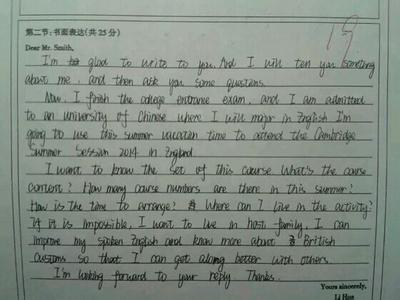 第二节:书面表达(共25分)
19
Dear Mr. Smith,
I'm glad to write to you. And I will tell you something
about me, and then ask you some questions.
Now, I finish the college entrance exam, and I am admitted
to an university of Chinese where I will major in English I'm
going to use this summer vacation time to attend the Cambridge
Summer Session 2014 in England.
I want to know the set of this course. What's the course
content? How many course numbers are there in this summer?
How is the time to arrange? Where can I live in the activity?
If it is impossible, I want to live in host family, I can
improve my spoken English and know more about British
customs so that I can get along better with others.
I'm looking forward to your reply. Thanks.
Yours sincerely,
Li Hua